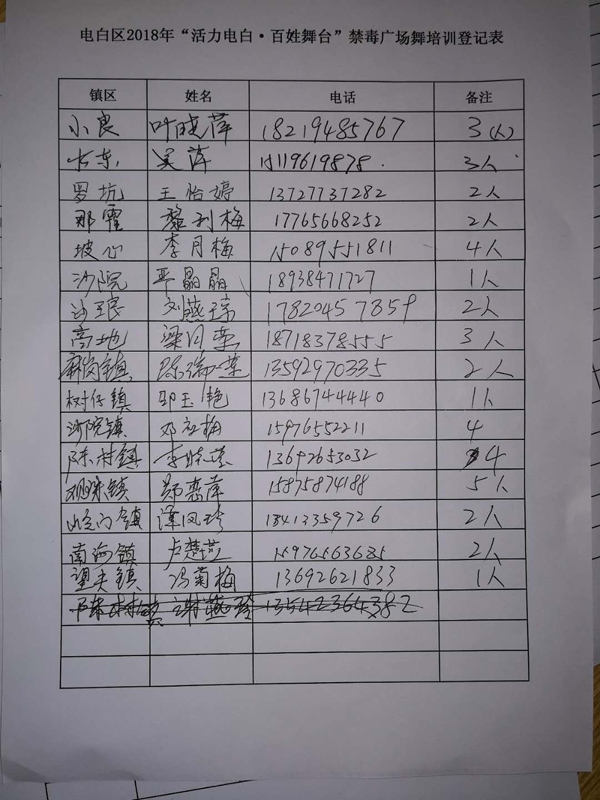 电白区2018年“活力电白·百姓舞台”禁毒广场舞培训登记表
镇区 姓名 电话 备注
小良 叶晓萍 18219485767 3(人)
吴萍 15119619878. 3人
罗坑 王怡婷 13727737282 2人
那霍 黎利梅 17765668252 2人
坡心 李月梅 15089551811 4人
沙院 晶晶 18938471727 1人
刘燕琼 17820457859 2人
高地 梁凤荣 18718378555 3人
麻岗镇 陈 荣 13592970335 2人
树仔镇 邹玉艳 13686744440 1人
沙院镇 邓 梅 15976552211 4
陈村镇 李 13692653032 4
郑恋萍 15875874188 5人
镇 谭凤玲 18413359726 2人
南海镇 卢楚燕 15976563685 2人
望夫镇 冯菊梅 13692621833 1人
谢燕玲 13542364382